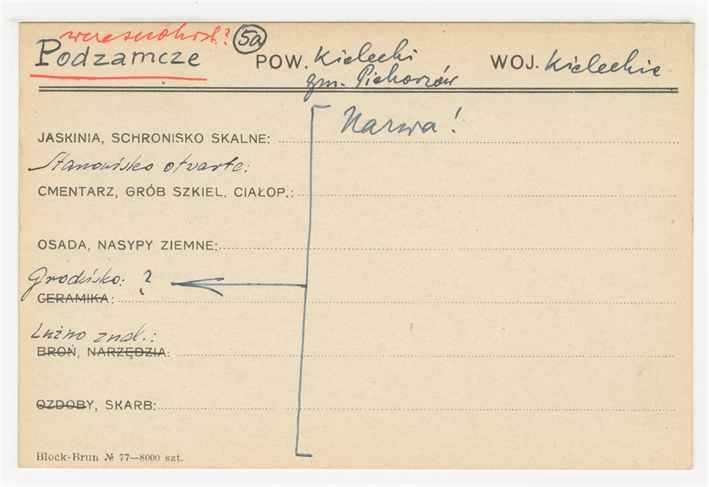 wczesnohist.? 5a
Podzamcze POW. Kielecki WOJ. Kieleckie
gm. Piekoszów
Nazwa!
JASKINIA, SCHRONISKO SKALNE:
Stanowisko otwarte:
CMENTARZ, GRÓB SZKIEL. CIAŁOP.:
OSADA, NASYPY ZIEMNE:
Grodzisko: ?
CERAMIKA:
Luźno znal.:
BROŃ, NARZĘDZIA:
OZDOBY, SKARB:
Block-Brun № 77—8000 szt.